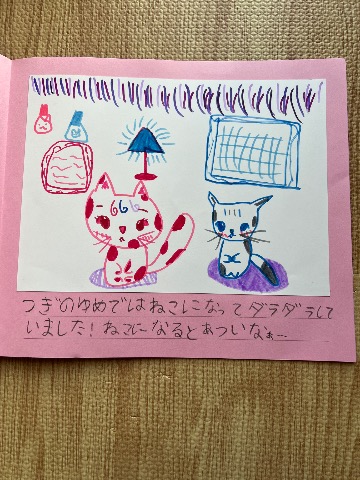 つぎのゆめではねこになってダラダラして
いました！ねこになるとあついなぁー